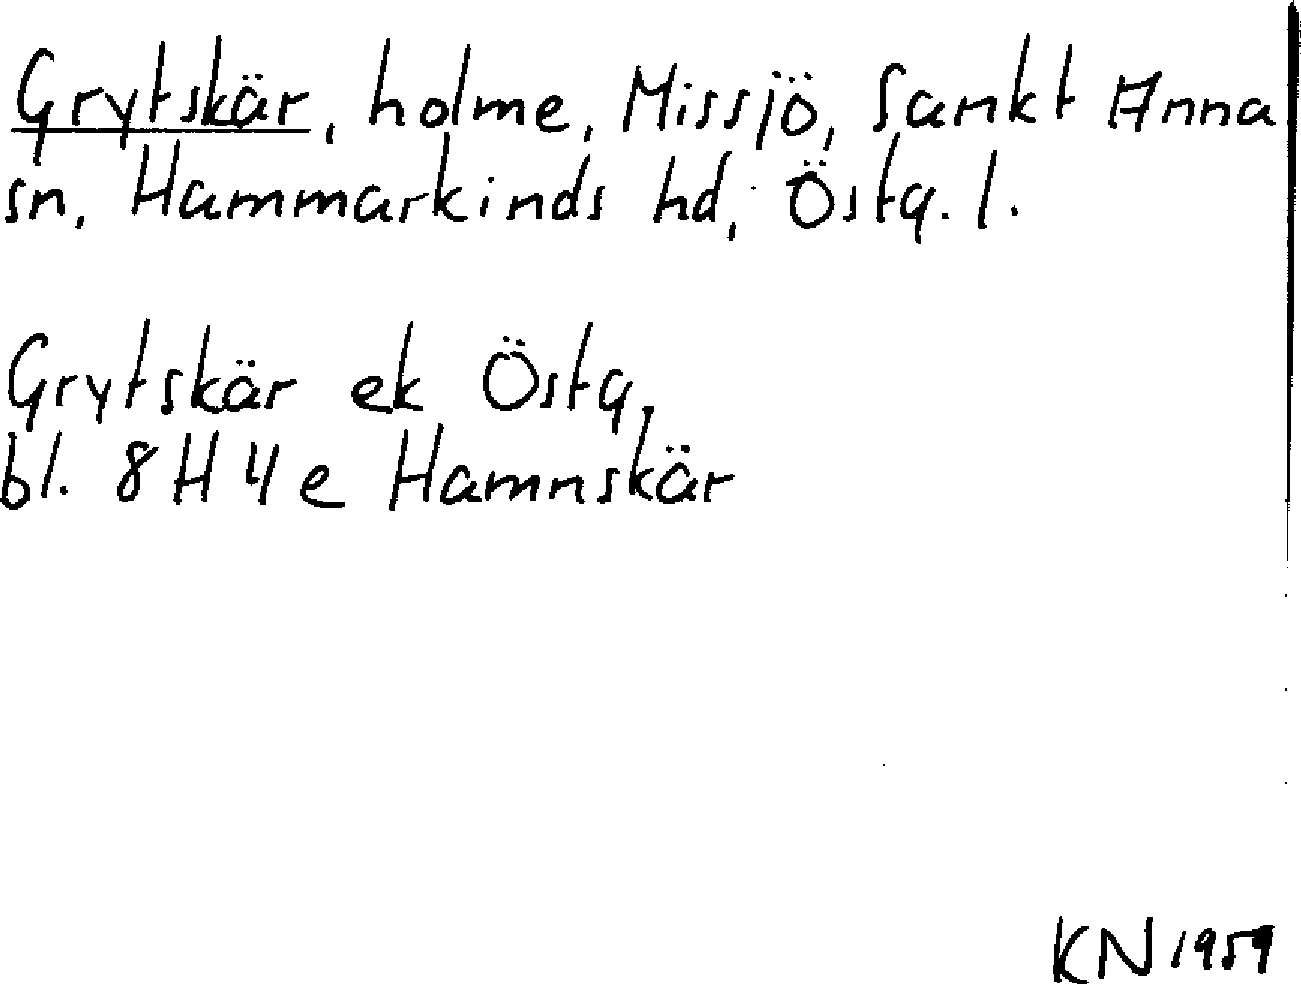 Grytskär, holme, Missjö, Sankt Anna
sn, Hammarkinds hd, Östg. l.
Grytskär ek Östg,
bl. 8H4e Hamnskär
KN 1959